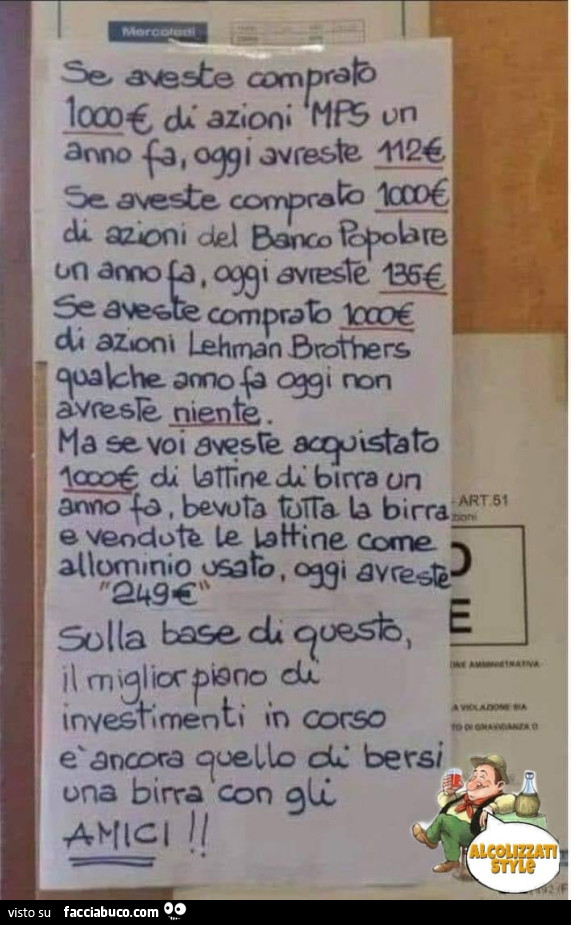 Mercoledì
Se aveste comprato
1000€ di azioni MPS un
anno fa, oggi avreste 112€
Se aveste comprato 1000€
di azioni del Banco Popolare
un anno fa, oggi avreste 136€
Se aveste comprato 1000€
di azioni Lehman Brothers
qualche anno fa oggi non
avreste niente.
Ma se voi aveste acquistato
1000€ di lattine di birra un
anno fa, bevuta tutta la birra
e vendute le lattine come
alluminio usato, oggi avreste
"249€"
Sulla base di questo,
il miglior piano di
investimenti in corso
e' ancora quello di bersi
una birra con gli
AMICI!!
ART.51
zioni
O
E
ONE AMMINISTRATIVA
A VIOLAZIONE SIA
TO DI GRAVIDANZA O
ALCOLIZZATI
STYLE
visto su facciabuco.com